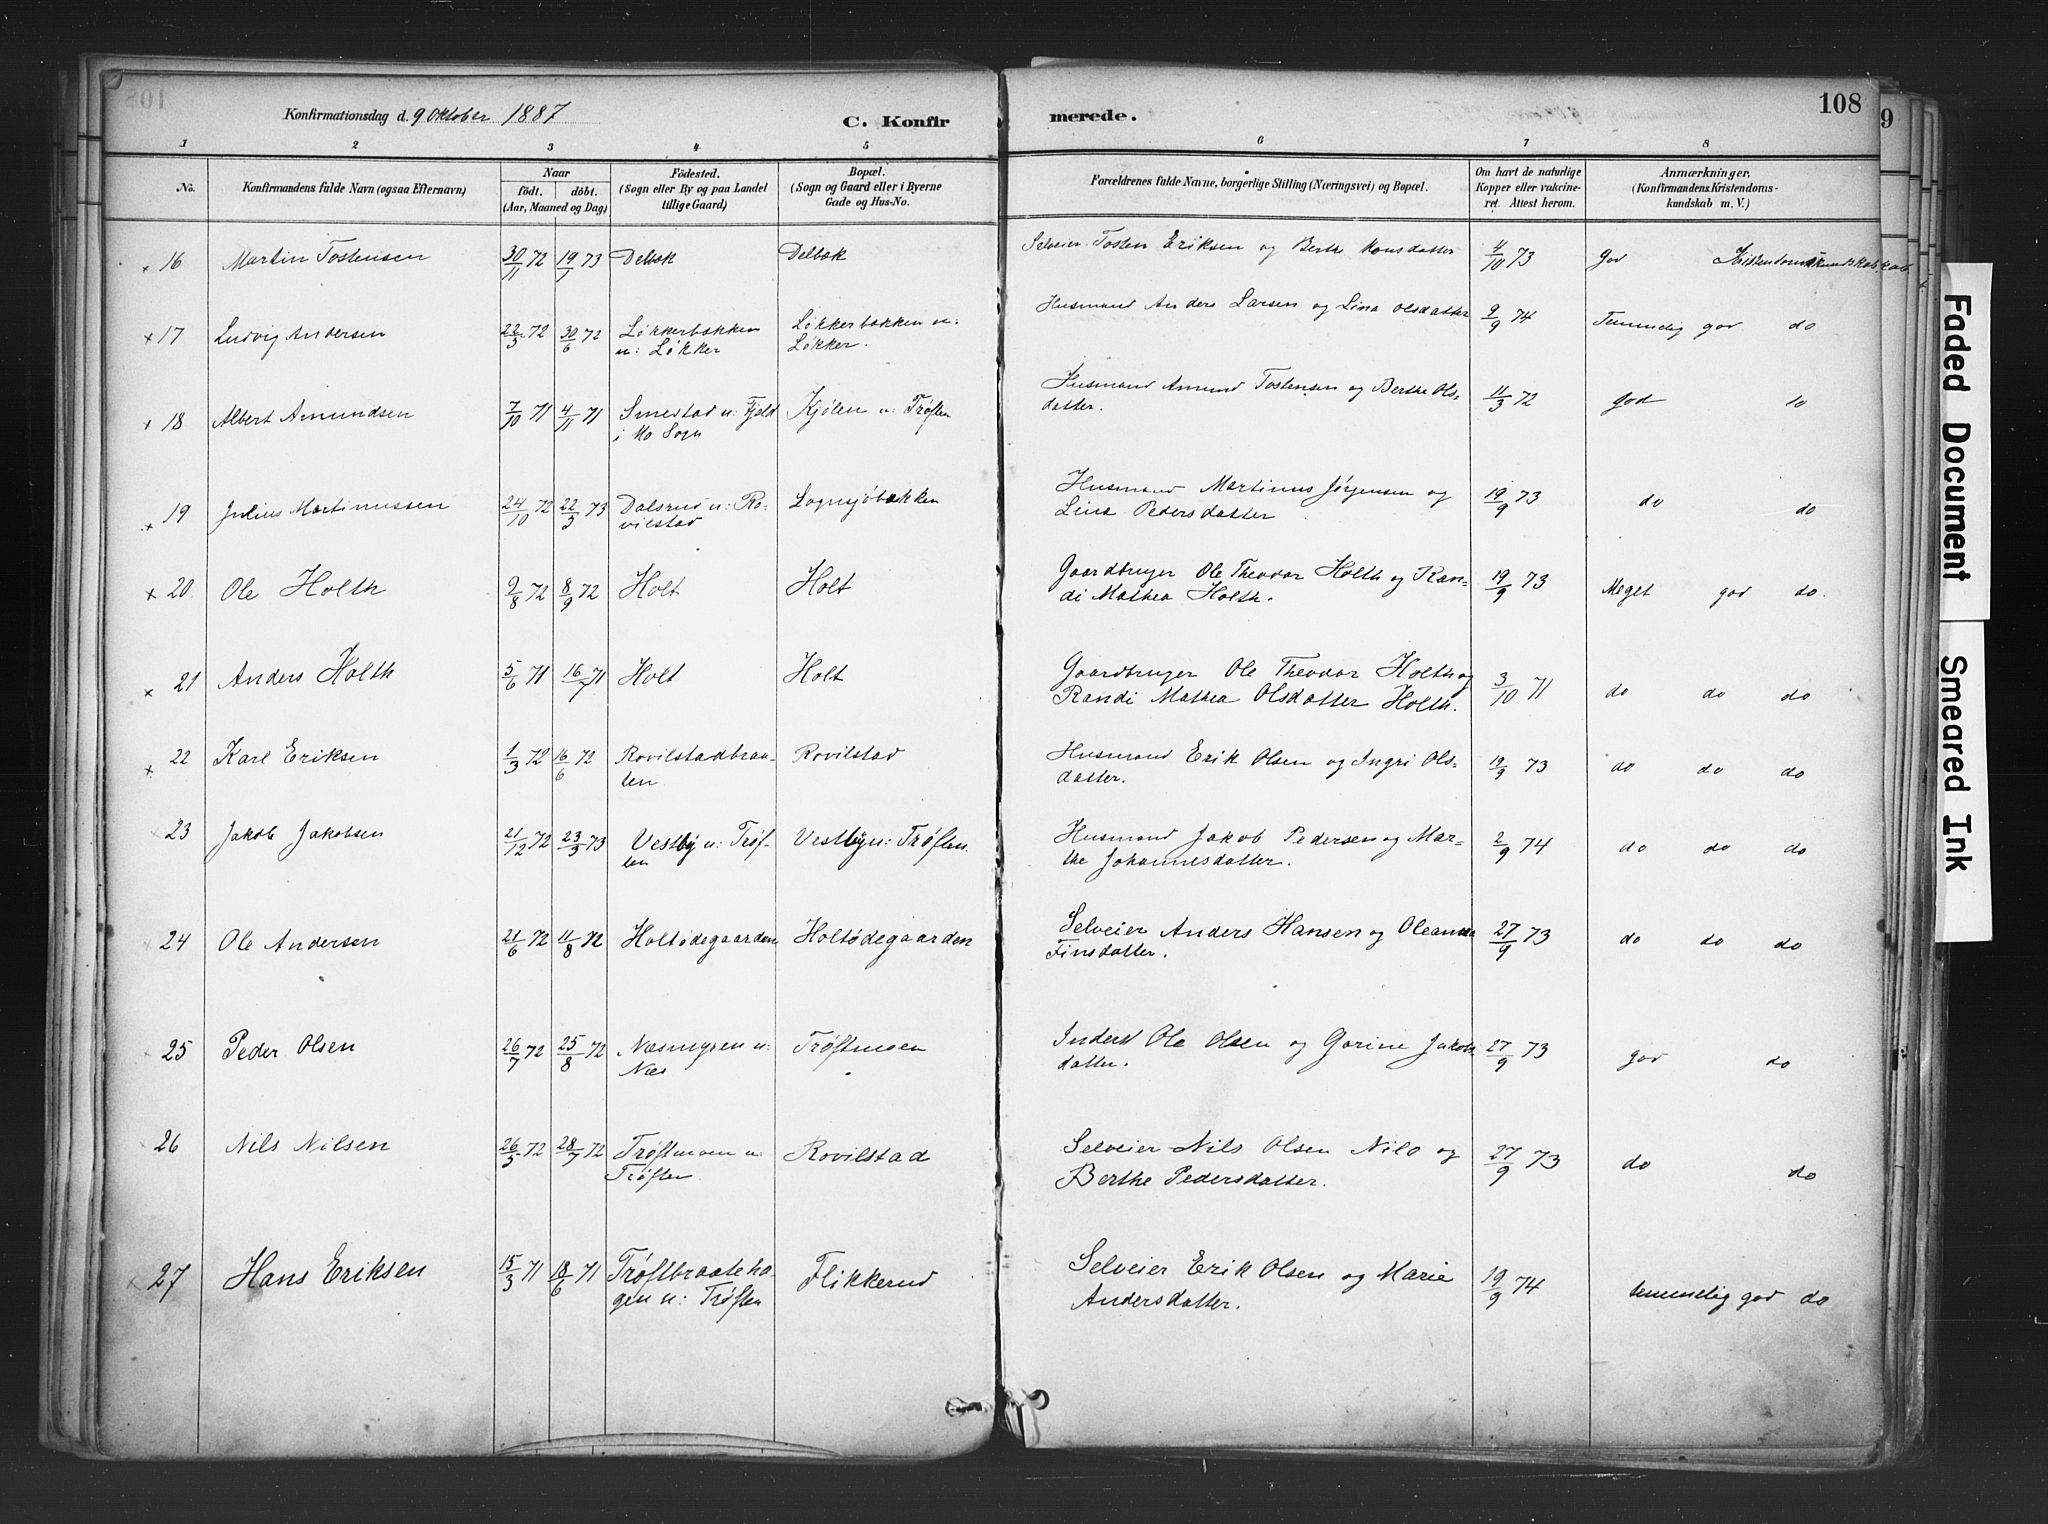 108
Konfirmationsdag d. 9 Oktober 1887
C. Konfir
merede.
1 2 3 4 5 6 7 8
No.
Konfirmandens fulde Navn (ogsaa Efternavn)
Naar
födt. döbt.
(Aar, Maaned og Dag)
Födested.
(Sogn eller By og paa Landet
tillige Gaard)
Bopæl.
(Sogn og Gaard eller i Byerne
Gade og Hus-No.
Forældrenes fulde Navne, borgerlige Stilling (Næringsvei) og Bopæl.
Om havt de naturlige
Kopper eller vakcine-
ret. Attest herom.
Anmærkninger,
(Konfirmandens Kristendoms-
kundskab m. V.)
x 16 Martin Tostensen 30/11 72 19/1 73 Delbæk Delbæk Selveier Tosten Eriksen og Berthe 4/10 73 god Kristendomskundskab
x 17 Ludvig Andersen 22/5 72 30/6 72 Løkkerbakken Løkkerbakken u: Husmand Anders Larsen og Lina Olsdatter 9/9 74 Temmelig god do
u: Løkker Løkker.
x 18 Albert Amundsen 7/10 71 4/11 71 Smedstad u: Fjeld Kjølen u: Trøften Husmand Amund Tostensen og Berthe Ols- 11/3 72 god do
i Mo Sogn datter.
x 19 Julius Martinussen 24/10 72 22/3 73 Dalsrud u: Ro- Sognsjøbakken Husmand Martinus Jørgensen og 19/9 73 do do
vilstad Lina Pedersdatter
x 20 Ole Holth 9/8 72 8/9 72 Holt Holt Gaardbruger Ole Theodor Holth og Ran- 19/9 73 Meget god do.
di Mathea Holth.
x 21 Anders Holth 5/6 71 16/7 71 Holt Holt Gaardbruger Ole Theodor Holth og 3/10 71 do do do
Randi Mathea Olsdatter Holth.
x 22 Karl Eriksen 1/3 72 16/6 72 Rovilstadbraa- Rovilstad Husmand Erik Olsen og Ingri Ols- 19/9 73 do do do
ten datter.
x 23 Jakob Jakobsen 21/12 72 23/3 73 Vestby u: Trøf- Vestby u: Trøften. Husmand Jakob Pedersen og Mar- 2/9 74 do do do
ten the Johannesdatter.
x 24 Ole Andersen 21/6 72 11/8 72 Holtødegaarden Holtødegaarden Selveier Anders Hansen og Oleanna 27/9 73 do do do
Finsdatter.
x 25 Peder Olsen 26/7 72 25/8 72 Næsmyren u: Trøftmoen Inderst Ole Olsen og Gorine Jakobs 27/9 73 god do
Næs datter.
x 26 Nils Nilsen 26/5 72 28/7 72 Trøftmoen u: Rovilstad Selveier Nils Olsen Nilo og 27/9 73 do do
Trøften Berthe Pedersdatter.
x 27 Hans Eriksen 15/3 71 18/6 71 Trøftbraateha- Flikkerud Selveier Erik Olsen og Marie 19/9 74 temmelig god do
gen u: Trøften Andersdatter.
9
Faded Document
Smeared Ink